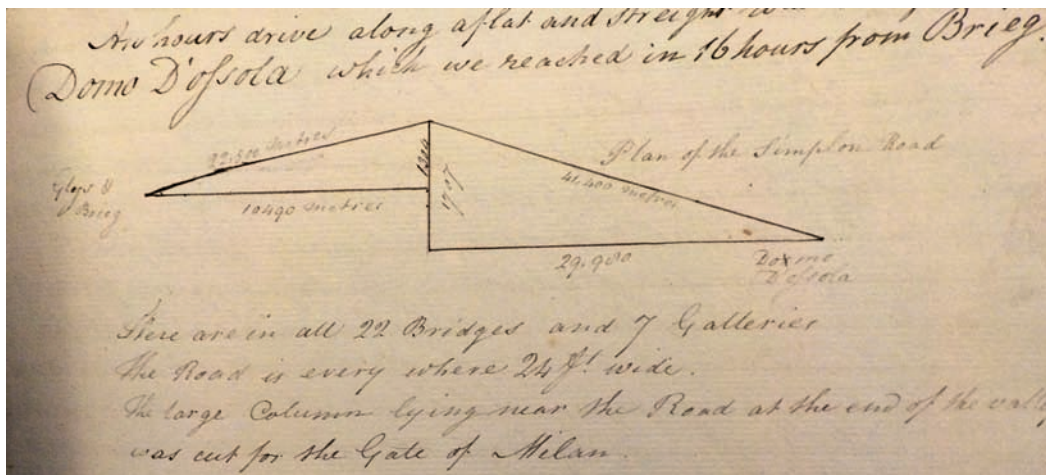 An hours drive along a flat and streight
Domo D'ofsola which we reached in 16 hours from Brieg.
22.500 metres
1304
1707
Plan of the Simplon Road
41,400 metres
Glys &
Brieg
10490 metres
29.980
Domo
D'ofsola
There are in all 22 Bridges and 7 Galleries
The Road is every where 24 ft. wide.
The large Column lying near the Road at the end of the vally
was cut for the Gate of Milan.